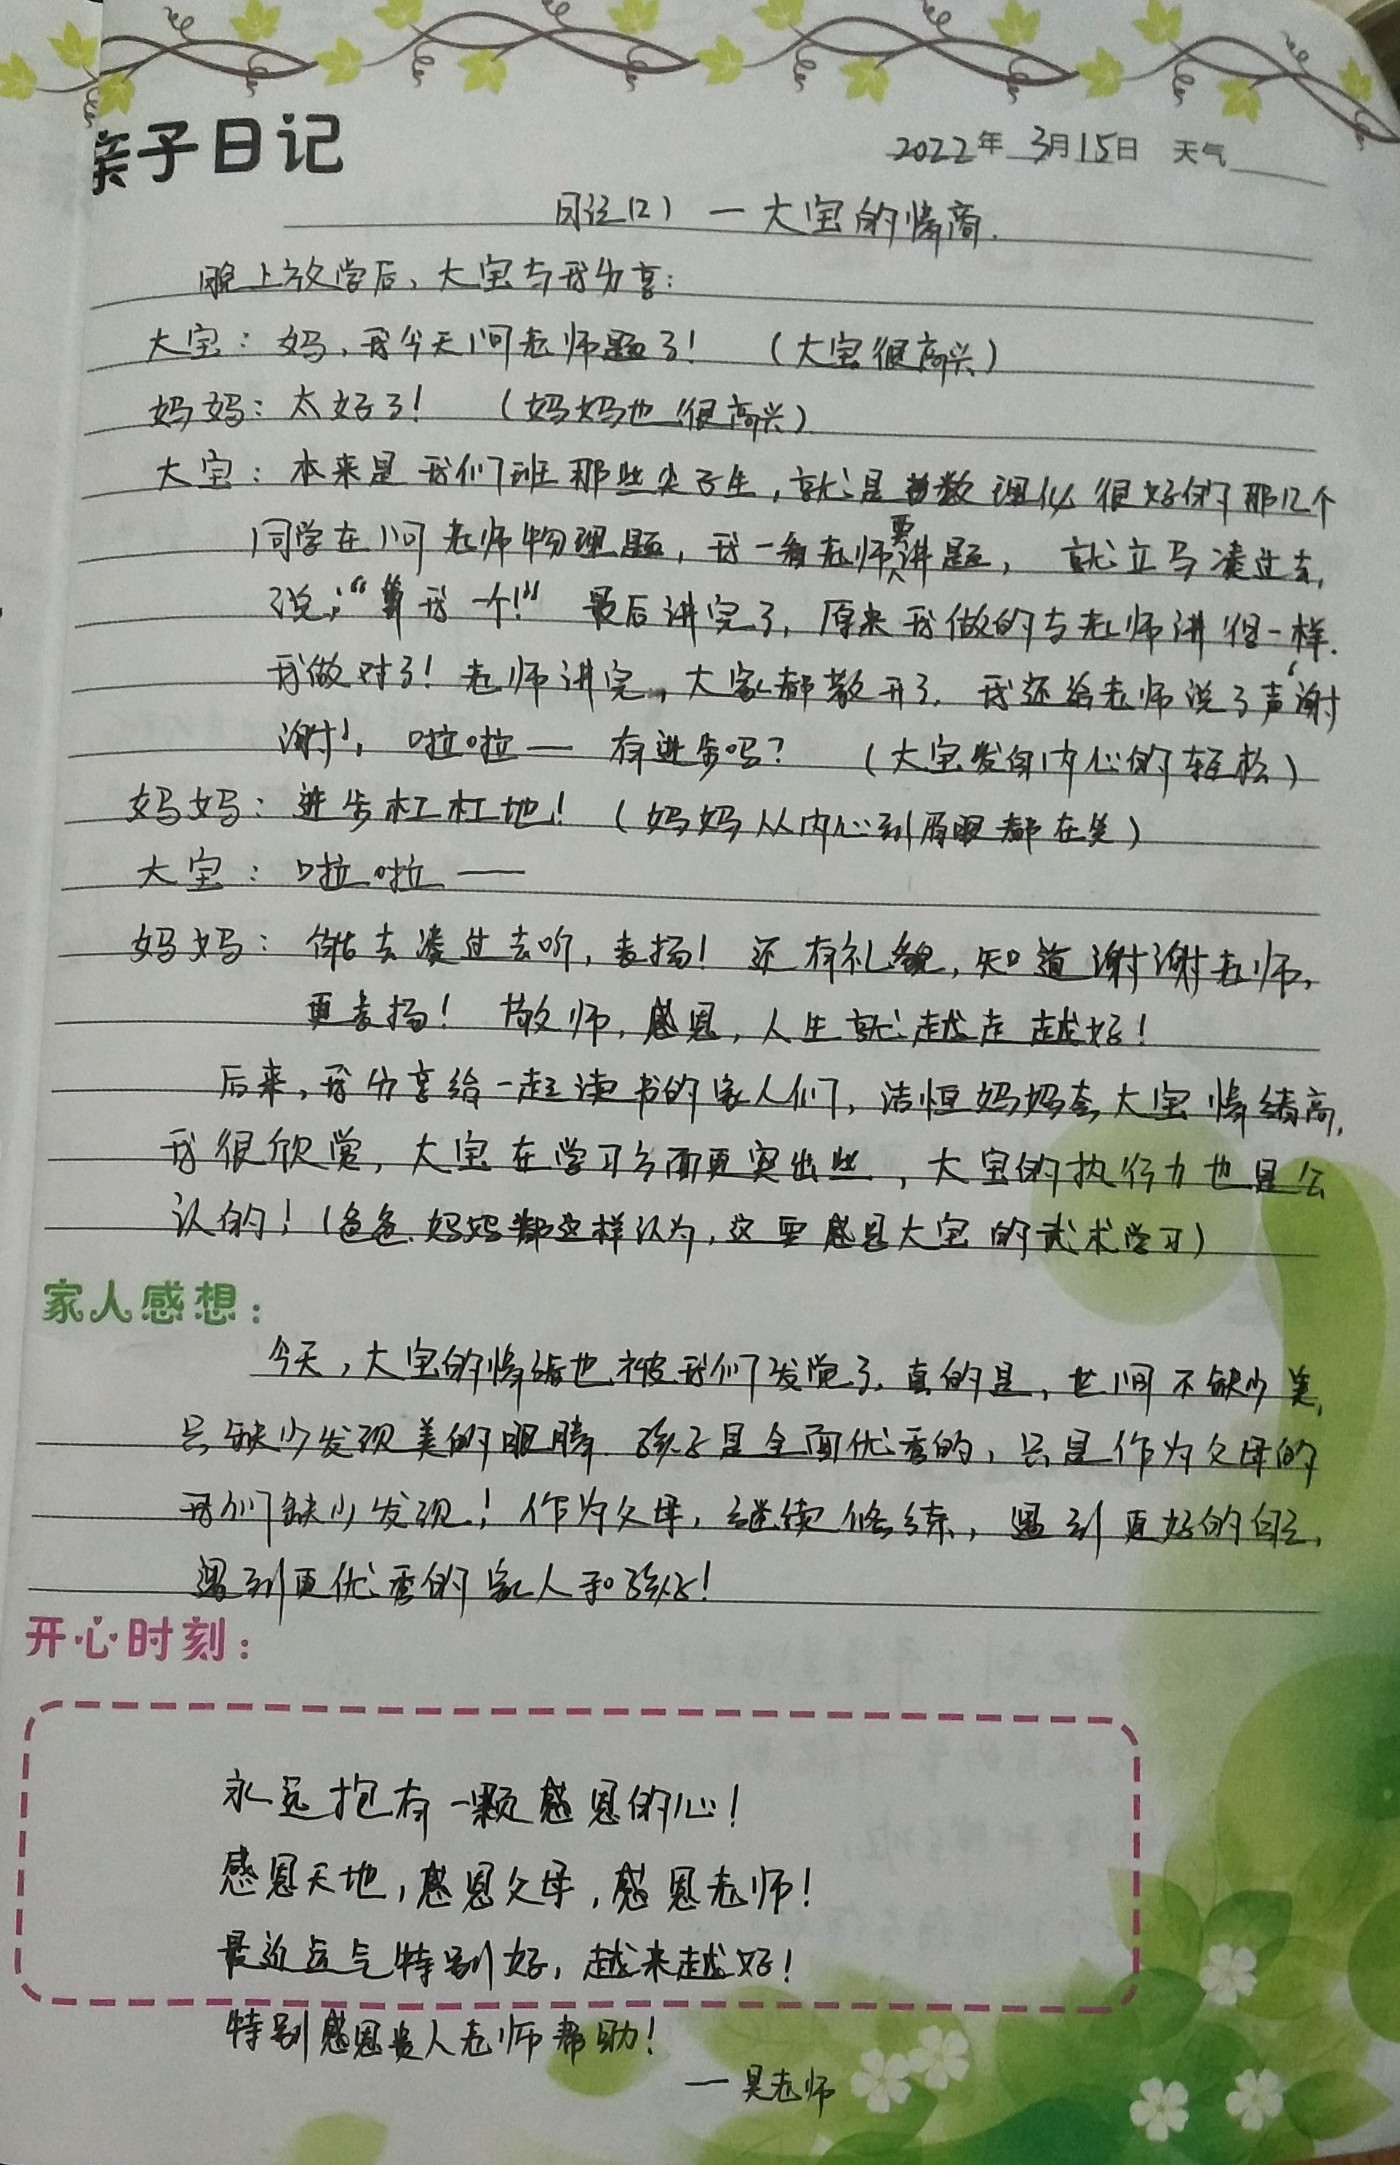 亲子日记
2022年 3月15日 天气
日记(2) — 大宝的情商.
晚上放学后,大宝与我分享:
大宝:妈,我今天问老师题了! (大宝很高兴)
妈妈:太好了! (妈妈也很高兴)
大宝:本来是我们班那些尖子生,就是数理化很好的那几个
同学在问老师物理题,我一看老师要讲题,就立马凑过去,
说:“算我一个!” 最后讲完了,原来我做的与老师讲但一样.
我做对了!老师讲完,大家都散开了.我还给老师说了声‘谢
谢’,啦啦— 有进步吗? (大宝发自内心的轻松)
妈妈:进步杠杠地! (妈妈从内心到眉眼都在笑)
大宝:啦啦——
妈妈:能去凑过去听,表扬!还有礼貌,知道谢谢老师,
更表扬! 敬师,感恩,人生就越走越好!
后来,我分享给一起读书的家人们,洁恒妈妈夸大宝情绪高,
我很欣赏,大宝在学习方面更突出些,大宝的执行力也是公
认的!(爸爸.妈妈都这样认为,这要感恩大宝的武术学习)
家人感想:
今天,大宝的情商也被我们发觉了.真的是,世间不缺少美,
只缺少发现美的眼睛.孩子是全面优秀的,只是作为父母的
我们缺少发现!作为父母,继续修练,遇到更好的自己,
遇到更优秀的家人和孩子!
开心时刻:
永远抱有一颗感恩的心!
感恩天地,感恩父母,感恩老师!
最近运气特别好,越来越好!
特别感恩贵人老师帮助!
— 吴老师